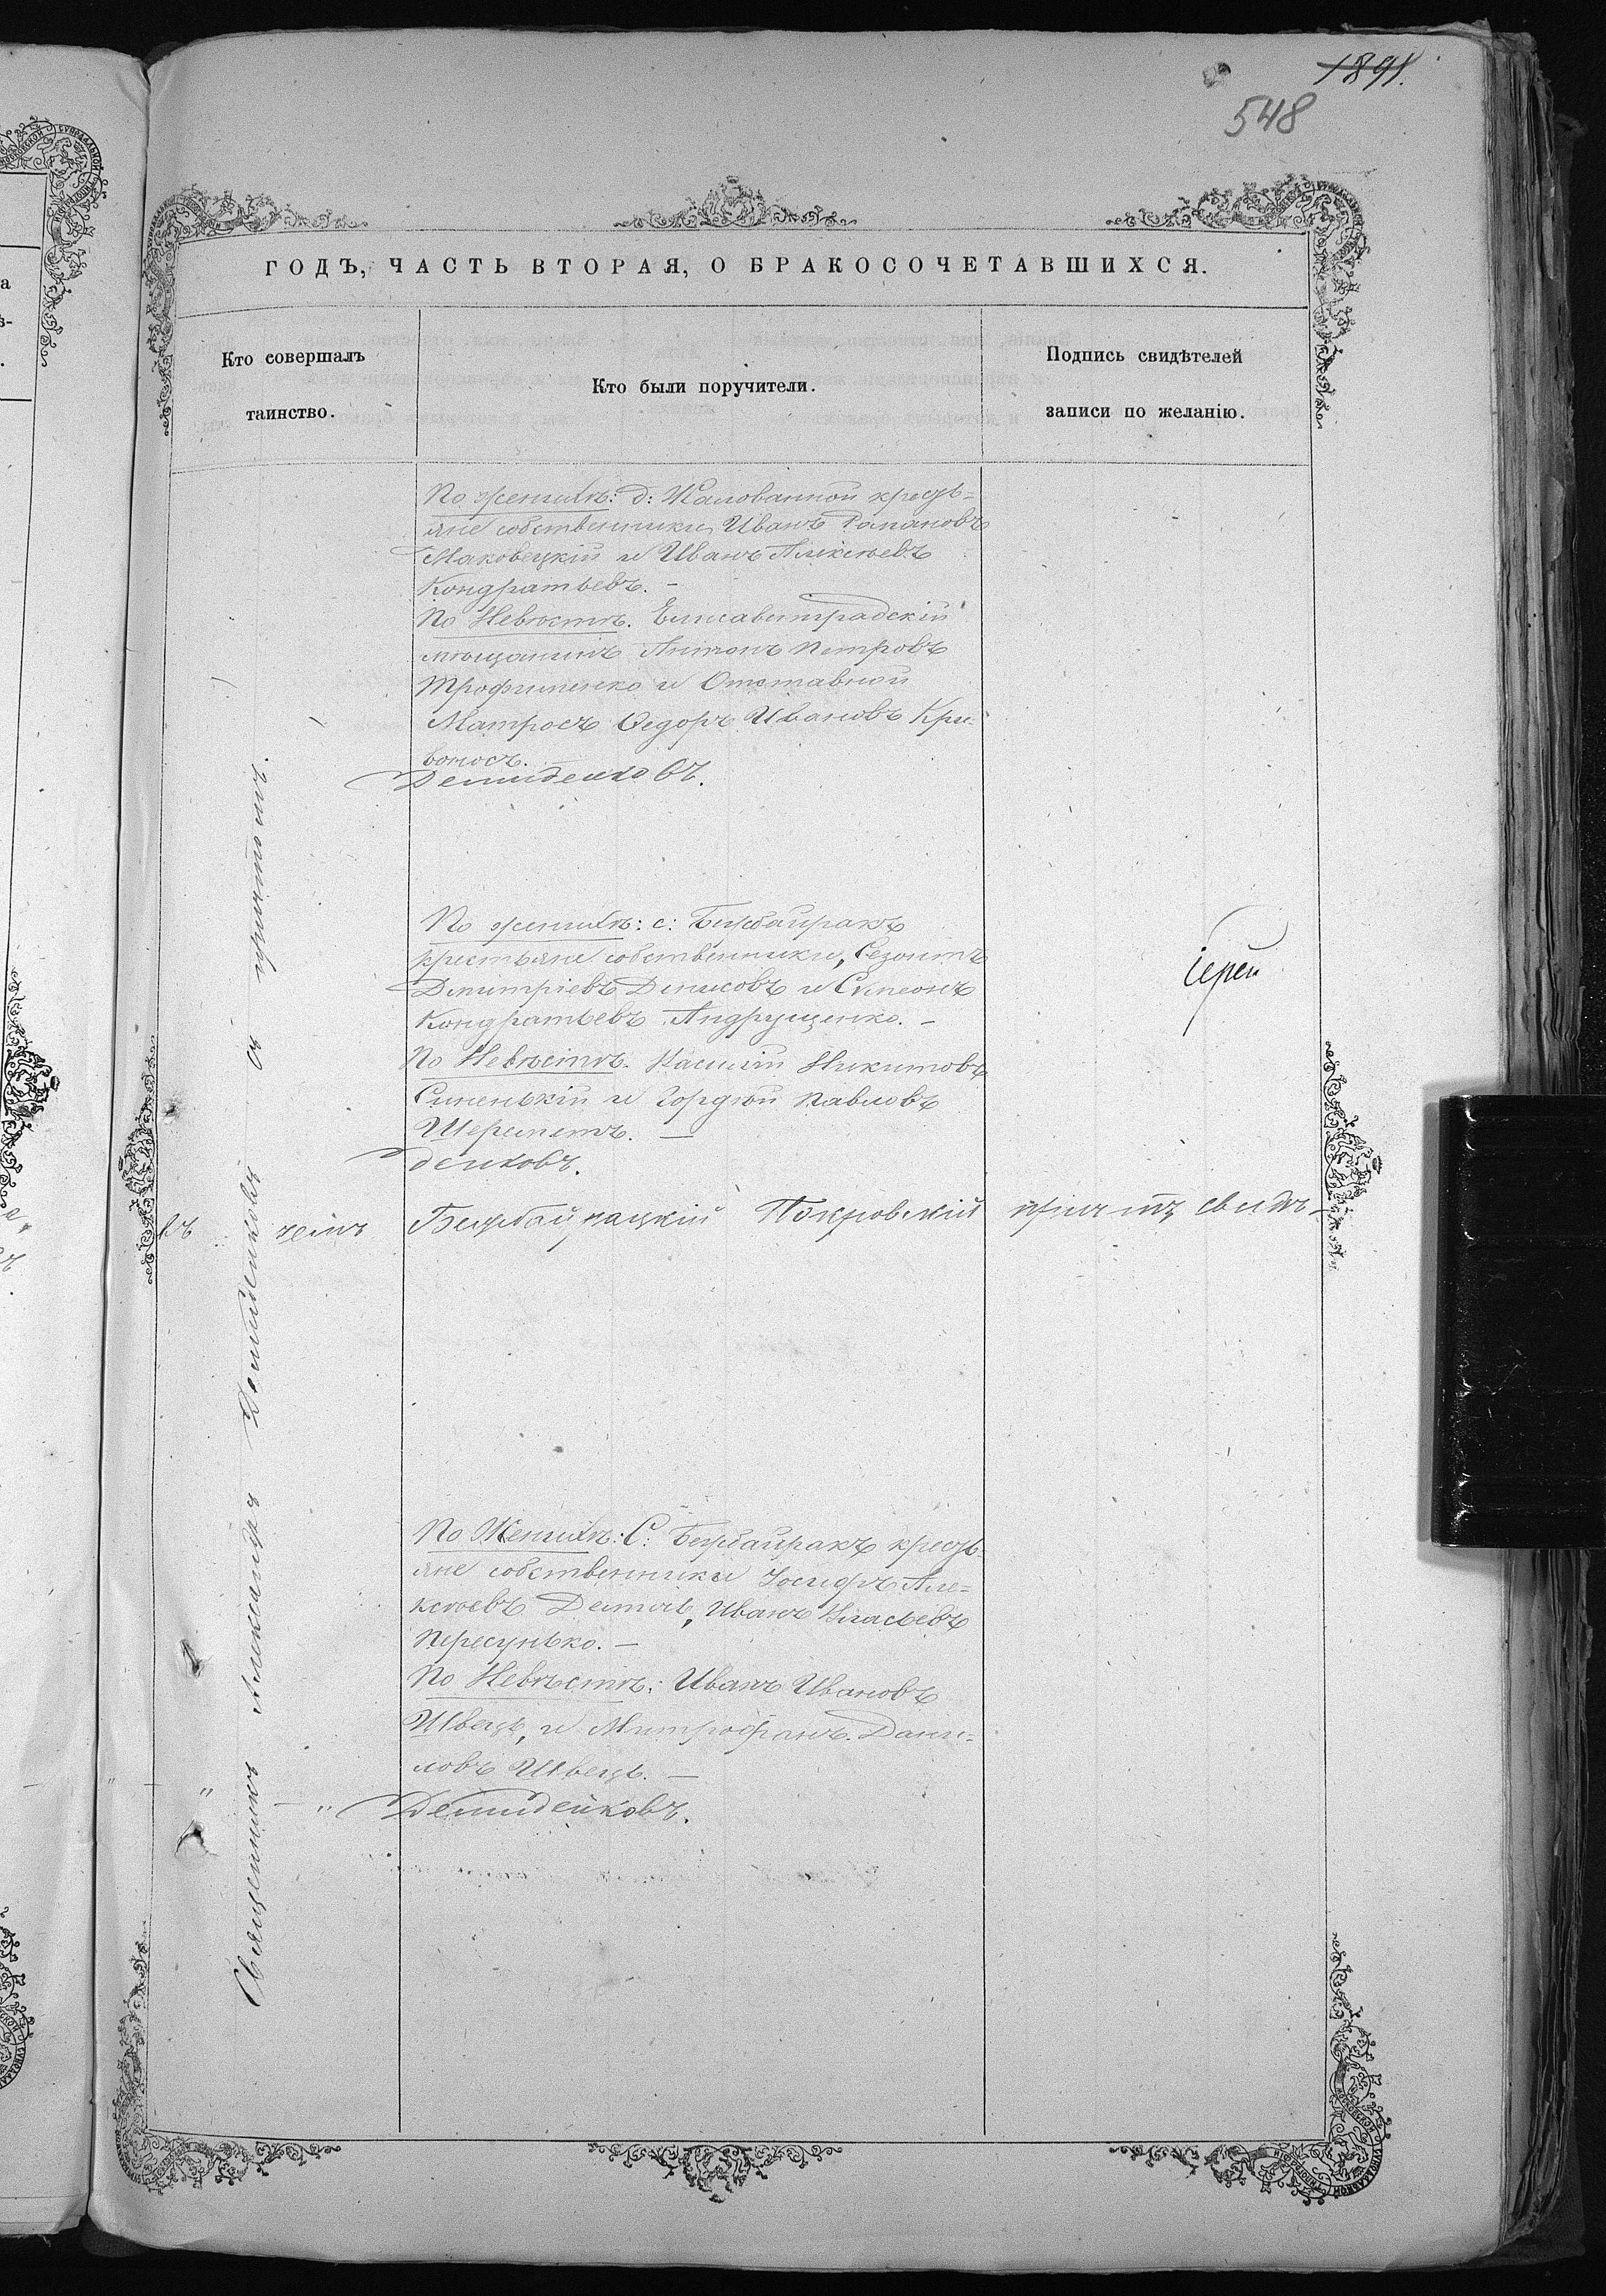 1891.
548
ГОДЪ, ЧАСТЬ ВТОРАЯ, О БРАКОСОЧЕТАВШИХСЯ.
Кто совершалъ
таинство.
Кто были поручители.
Подпись свидѣтелей
записи по желанію.
Священникъ Александръ Демиденковъ съ причтомъ.
По женихѣ: д: Жалованной кресть=
яне собственники Иванъ Романовъ
Маковецкій и Иванъ Алексѣевъ
Кондратьевъ. –
По Невѣстѣ. Елисаветградскій
мѣщанинъ Антонъ Петровъ
Трофименко и Отставной
Матросъ Ѳедоръ Ивановъ Кри-
воносъ. –
Демиденковъ.
По женихѣ: с: Бирбайракъ
крестьяне собственники, Сезонтъ
Димитріевъ Денисовъ и Симеонъ
Кондратьевъ Андрущенко. –
По Невѣстѣ. Василій Никитовъ
Синенькій и Гордѣй Павловъ
Шереметъ. –
денковъ.
Іерей
въ чемъ Бирбайрацкій Покровскій причтъ свидѣ-
По Женихѣ: С: Бирбайракъ кресть-
яне собственники Іосифъ Але=
ксѣевъ, Иванъ Власьевъ
Пересунько. –
По Невѣстѣ: Иванъ Ивановъ
Швецъ, и Митрофанъ Дани=
ловъ Швецъ. –
Демиденковъ.